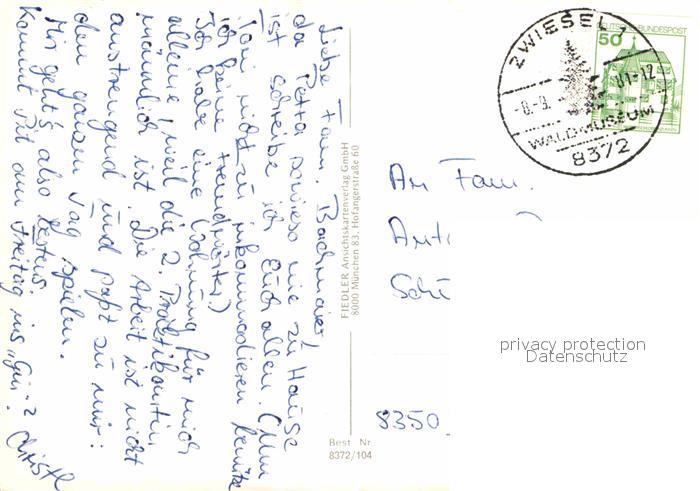 Liebe Fam. Bachmaier!
da Petra sowieso nie zu Hause
ist schreibe ich Euch allen. (Um
Toni nicht zu inkommodieren benütze
ich keine Fremdwörter.)
Ich habe eine Wohnung für mich
alleine, weil die 2. Praktikantin
männlich ist. Die Arbeit ist nicht
anstrengend und paßt zu mir:
den ganzen Tag spielen.
Mir geht's also bestens.
Kommt Pit am Freitag ins "
Christl
FIEDLER Ansichtskartenverlag GmbH
8000 München 83, Hofangerstraße 60
Best Nr.
8372/104
ZWIESEL 1
-8.-9.
81-12
WALDMUSEUM
8372
DEUTSCHE BUNDESPOST
50
An Fam.
8350
privacy protection
Datenschutz